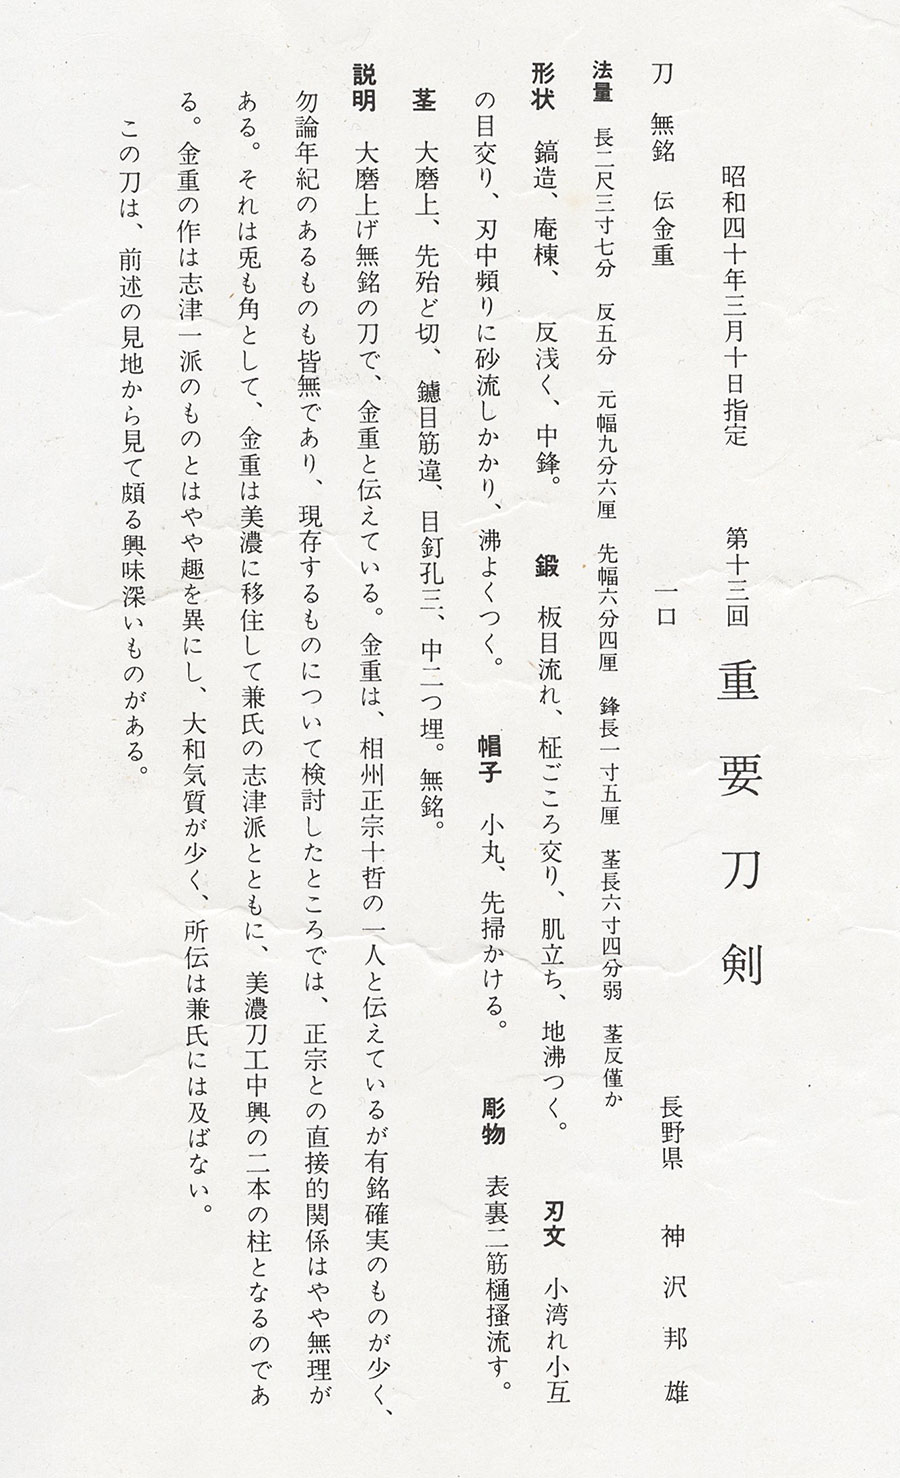 昭和四十年三月十日指定　第十三回　重要刀剣
刀　無銘　伝金重　一口　長野県　神沢邦雄
法量　長二尺三寸七分　反五分　元幅九分六厘　先幅六分四厘　鋒長一寸五厘　茎長六寸四分弱　茎反僅か
形状　鎬造、庵棟、反浅く、中鋒。　鍛　板目流れ、柾ごころ交り、肌立ち、地沸つく。　刃文　小湾れ小互
の目交り、刃中頻りに砂流しかかり、沸よくつく。　帽子　小丸、先掃かける。　彫物　表裏二筋樋掻流す。
茎　大磨上、先殆ど切、鑢目筋違、目釘孔三、中二つ埋。無銘。
説明　大磨上げ無銘の刀で、金重と伝えている。金重は、相州正宗十哲の一人と伝えているが有銘確実のものが少く、
勿論年紀のあるものも皆無であり、現存するものについて検討したところでは、正宗との直接的関係はやや無理が
ある。それは兎も角として、金重は美濃に移住して兼氏の志津派とともに、美濃刀工中興の二本の柱となるのであ
る。金重の作は志津一派のものとはやや趣を異にし、大和気質が少く、所伝は兼氏には及ばない。
この刀は、前述の見地から見て頗る興味深いものがある。